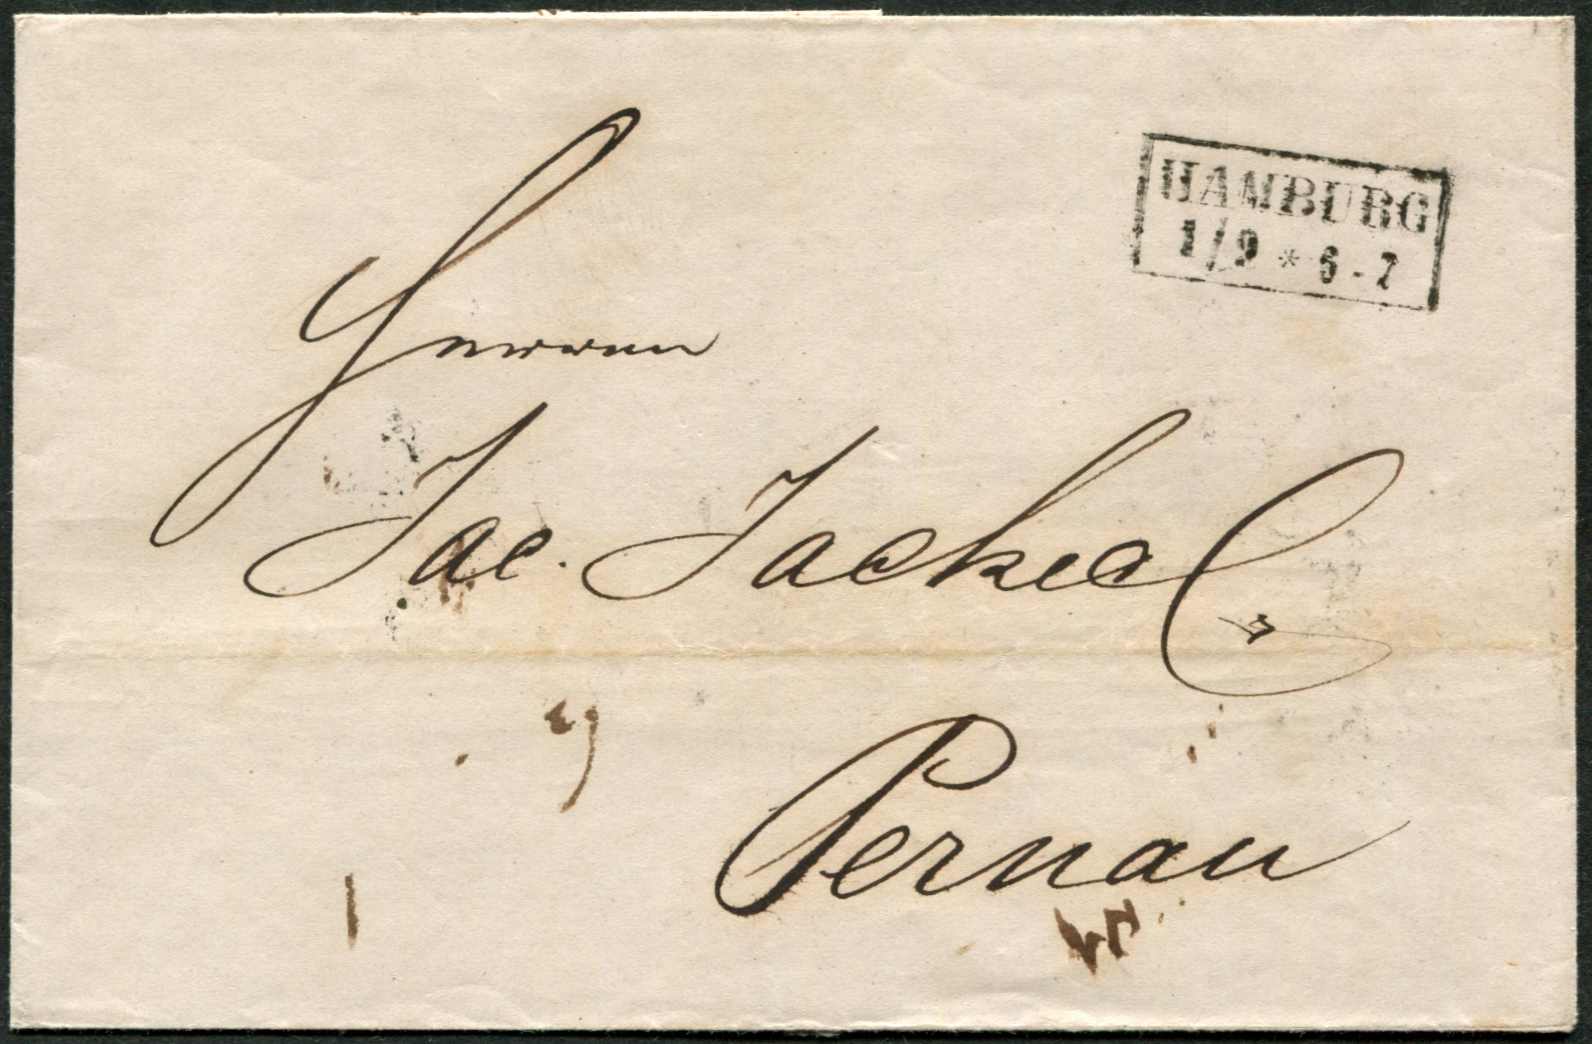 HAMBURG
1/9 * 6-7
Herren
Jac. Jacke & C
Pernau